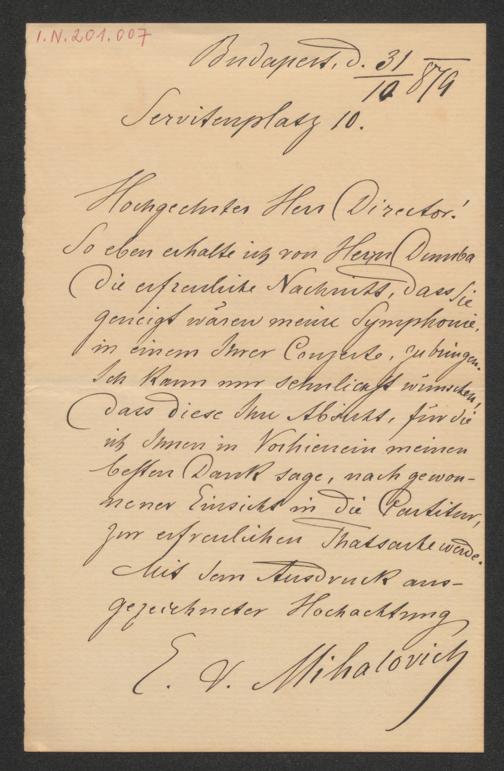 I.N. 201.007
Budapest, d. 31/10 879
Servitenplatz 10.
Hochgeehrter Herr Director!
So eben erhalte ich von Herrn Dumba
die erfreuliche Nachricht, dass Sie
geneigt wären meine Symphonie,
in einem Ihrer Conzerte, zu bringen.
Ich kann nur sehnlichst wünschen,
dass diese Ihre Absicht, für die
ich Ihnen in Vorhienein meinen
besten Dank sage, nach gewon-
nener Einsicht in die Partitur,
zur erfreulichen Thatsache werde.
Mit dem Ausdruck aus-
gezeichneter Hochachtung
E. v. Mihalovich